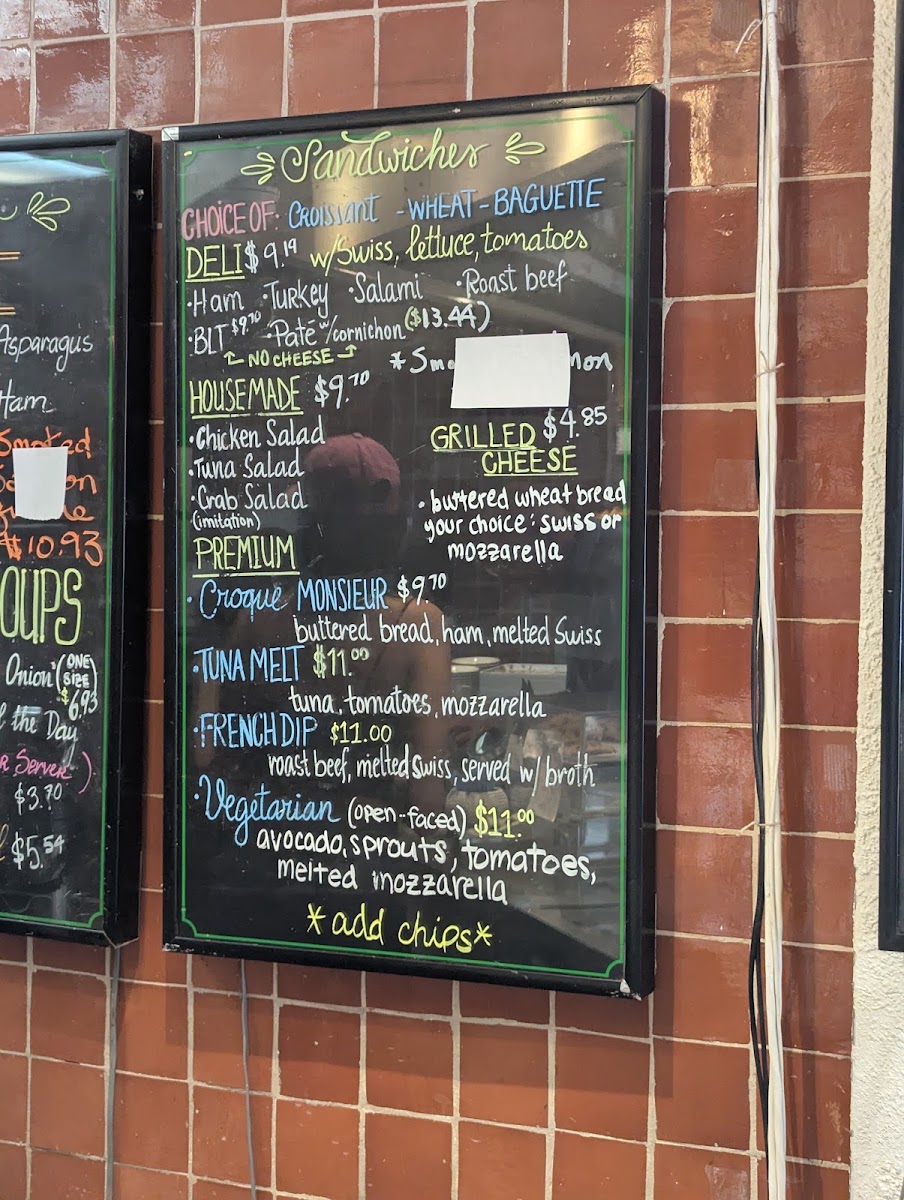 Asparagus
Ham
Smoked
$10.93
OUPS
Onion (ONE SIZE $6.93)
the Day
Server)
$3.70
$5.54
Sandwiches
CHOICE OF: CROISSANT - WHEAT - BAGUETTE
DELI $9.19 w/Swiss, lettuce, tomatoes
·Ham ·Turkey ·Salami ·Roast beef
·BLT $9.70 ·Paté w/cornichon ($13.44)
NO CHEESE
HOUSEMADE $9.70
·Chicken Salad
·Tuna Salad
·Crab Salad
(imitation)
GRILLED $4.85
CHEESE
·buttered wheat bread
your choice: swiss or
mozzarella
PREMIUM
·Croque MONSIEUR $9.70
buttered bread, ham, melted Swiss
·TUNA MELT $11.00
tuna, tomatoes, mozzarella
·FRENCH DIP $11.00
roast beef, melted Swiss, served w/ broth
·Vegetarian (open-faced) $11.00
avocado, sprouts, tomatoes,
melted mozzarella
*add chips*